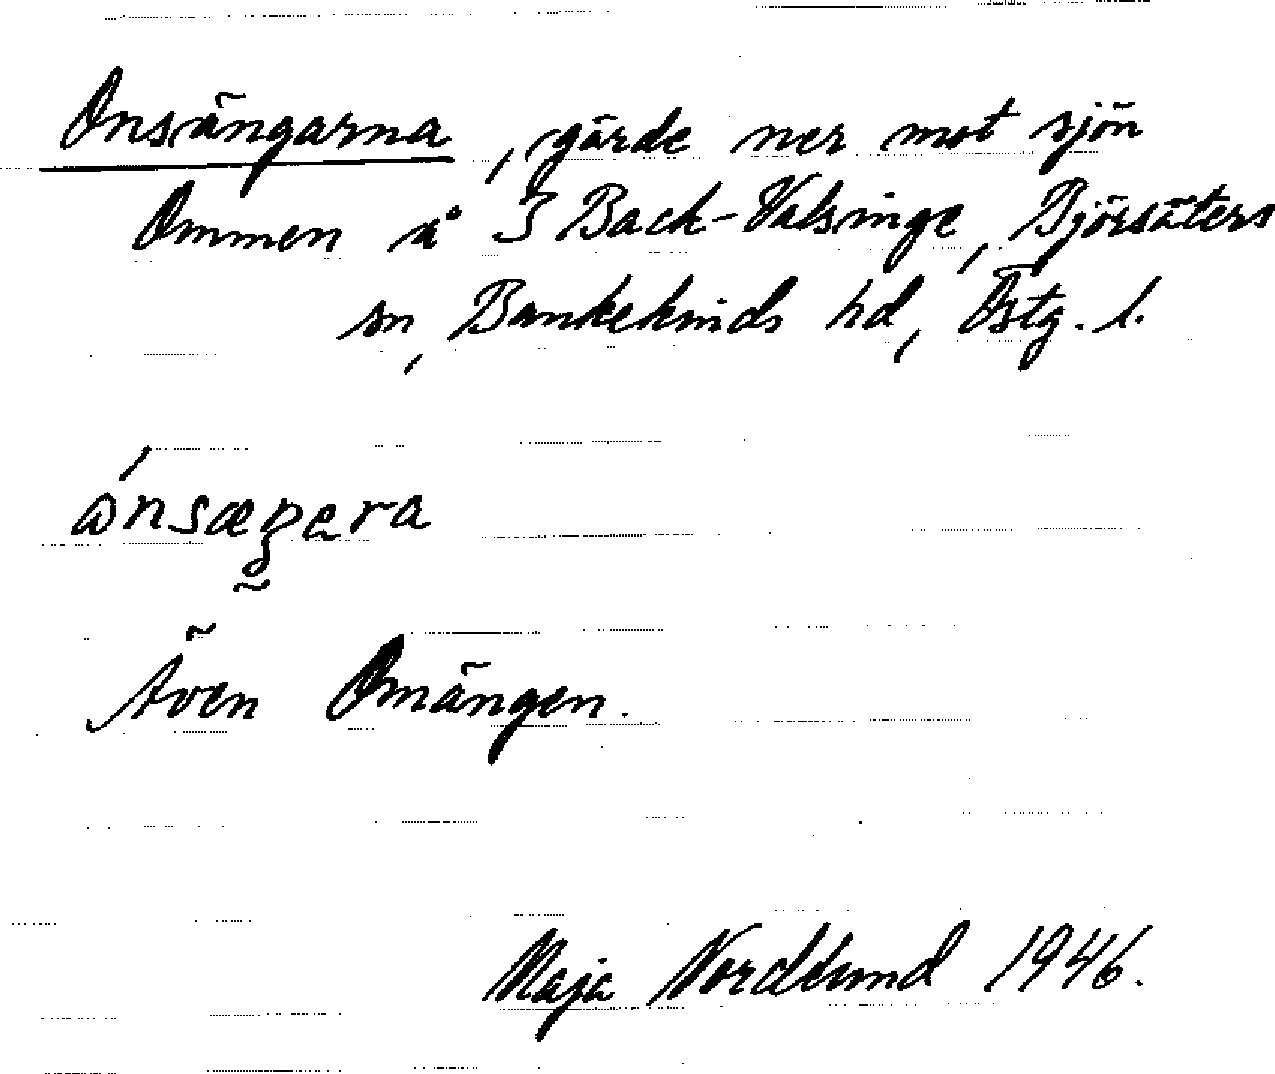 Onsängarna, gärde ner mot sjön
Ommen å I Back-Valsinge, Björsäters
sn, Bankekinds hd, Östg. l.
Även Omängen.
Maja Nordlund 1946.